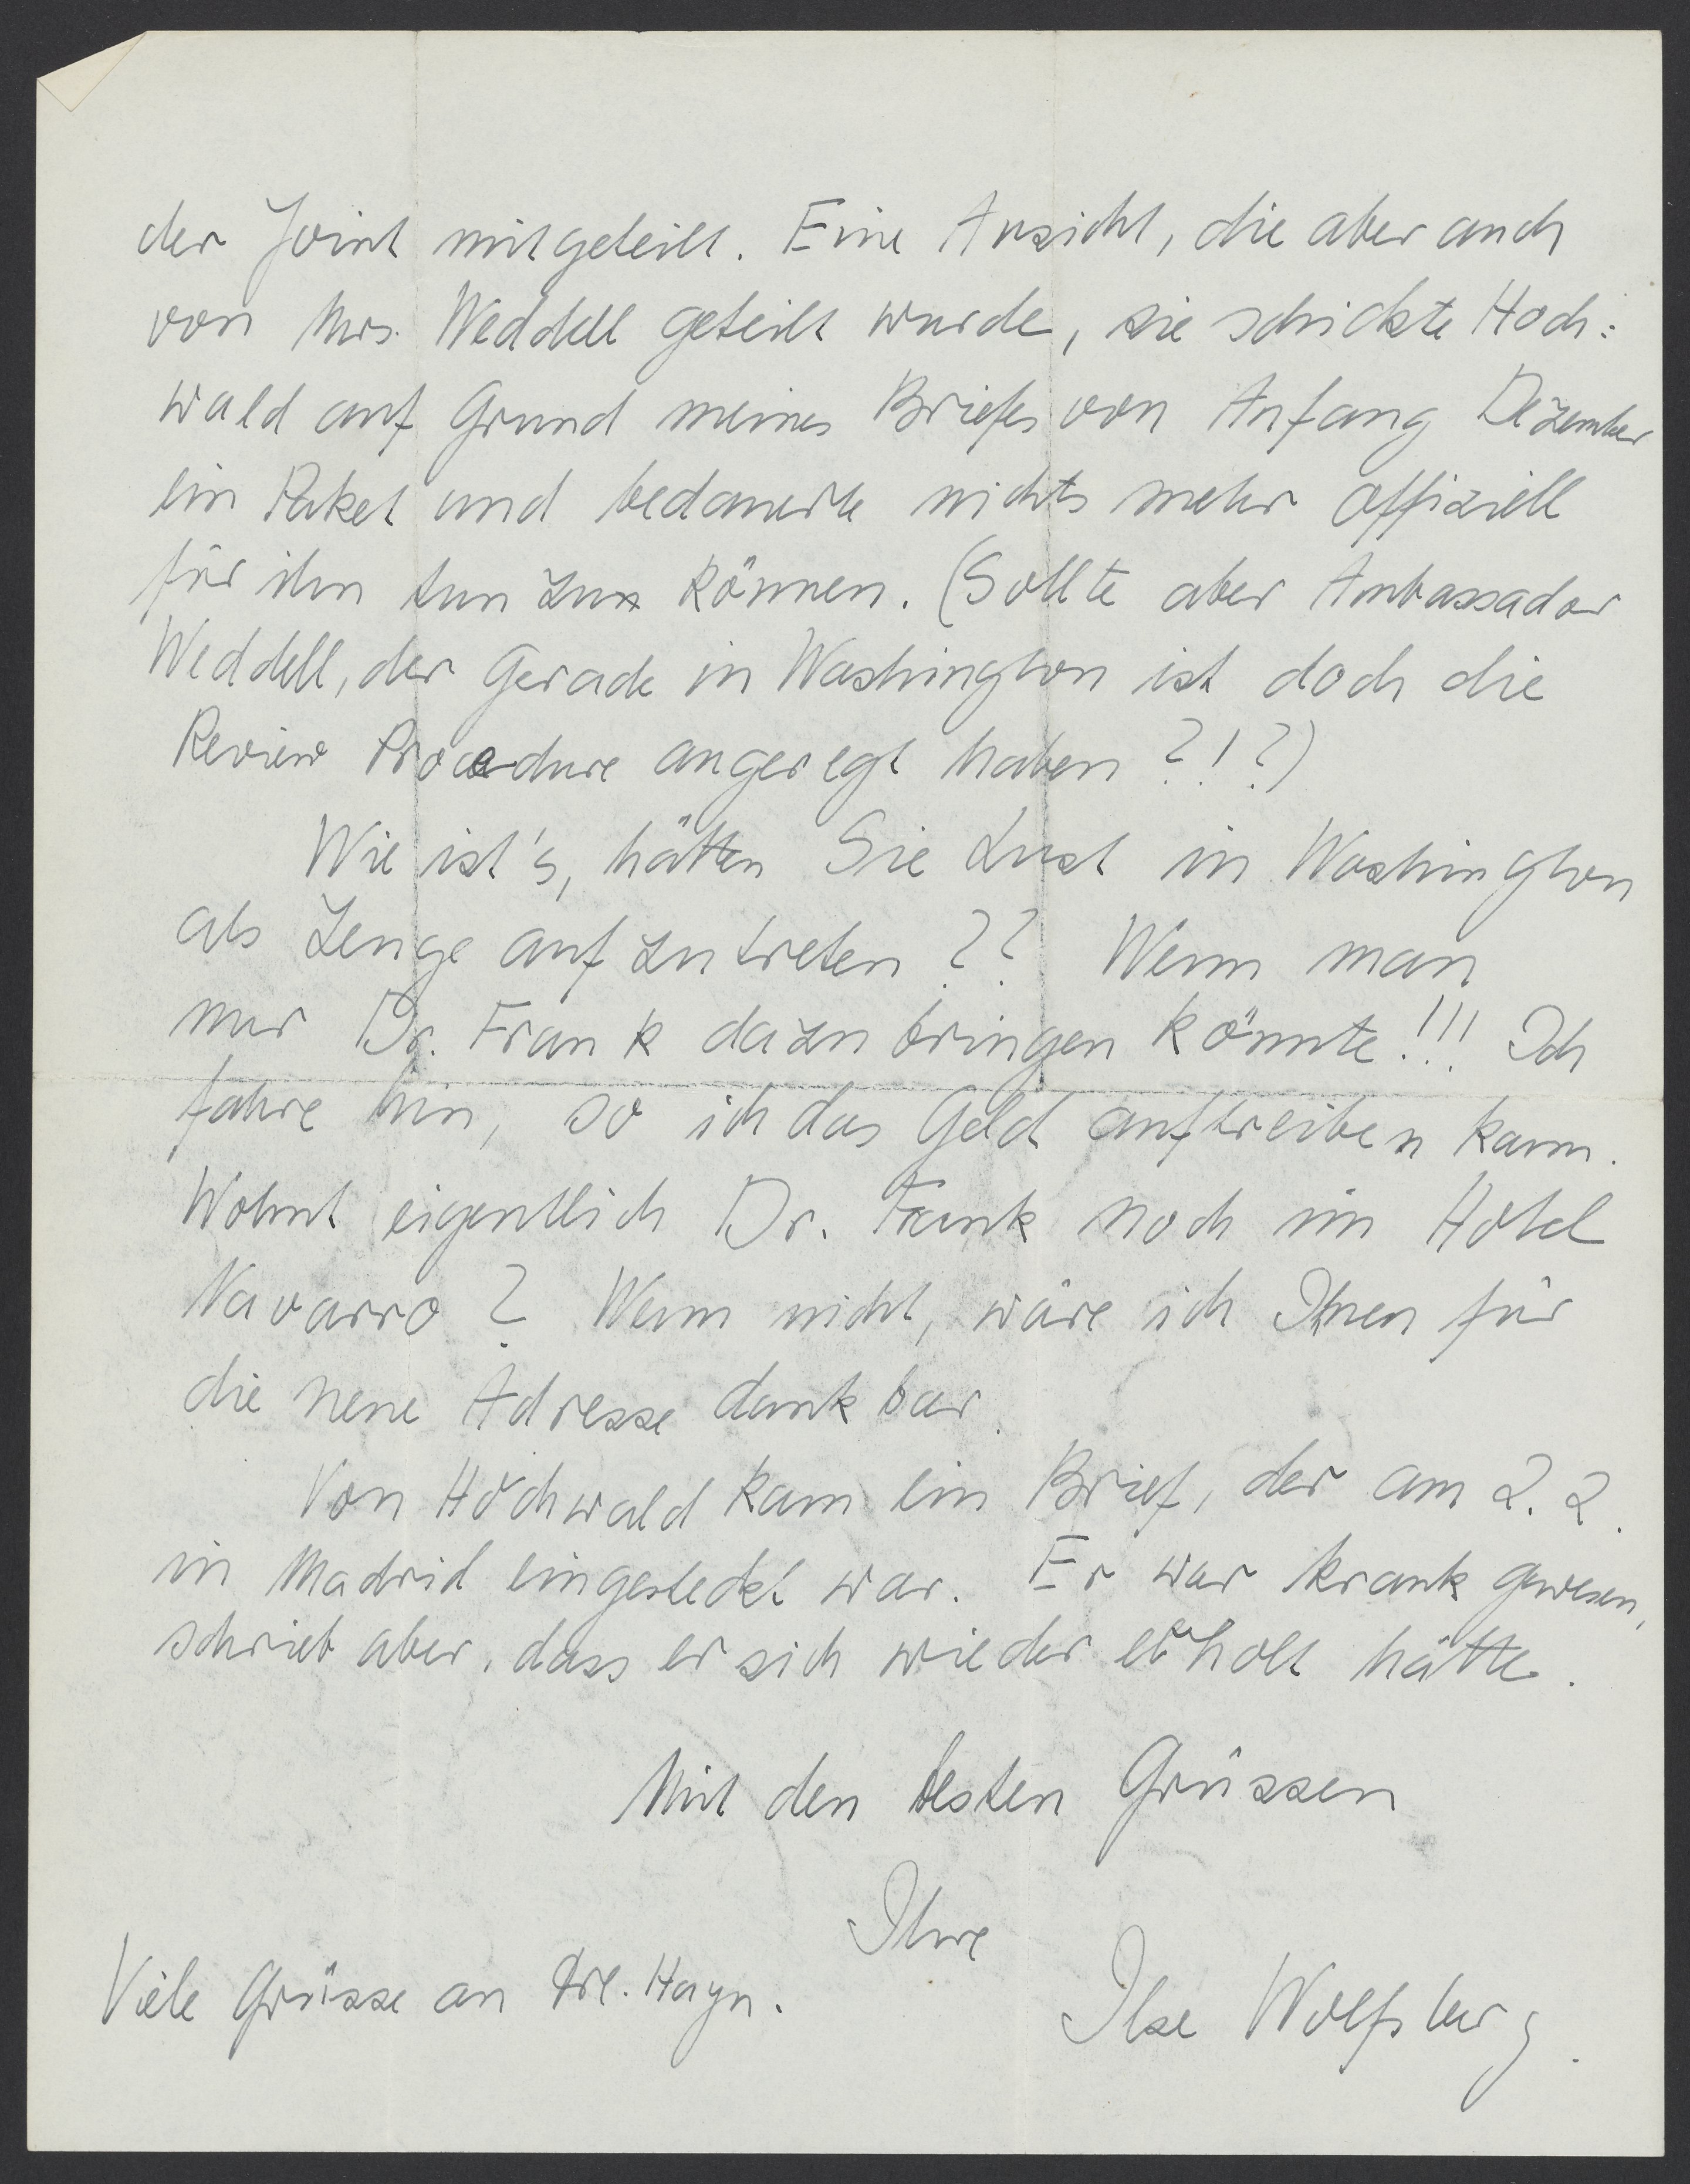 der Joint mitgeteilt. Eine Ansicht, die aber auch
von Mrs. Weddell geteilt wurde, sie schickte Hoch:
wald auf Grund meines Briefes von Anfang Dezember
ein Paket und bedauerte nichts mehr offiziell
für ihn tun zu können. (Sollte aber Ambassador
Weddell, der gerade in Washington ist doch die
Review Procedure angeregt haben ?!?)
Wie ist's, hätten Sie Lust in Washington
als Zeuge aufzutreten ?? Wenn man
nur Dr. Frank dazu bringen könnte!!! Ich
fahre hin, so ich das Geld auftreiben kann.
Wohnt eigentlich Dr. Frank noch im Hotel
Navarro ? Wenn nicht, wäre ich Ihnen für
die neue Adresse dankbar.
Von Hochwald kam ein Brief, der am 2.2.
in Madrid eingesteckt war. Er war krank gewesen,
schrieb aber, dass er sich wieder erholt hätte.
Mit den besten Grüssen
Ihre
Viele Grüsse an Frl. Hayn.
Ilse Wolfsberg.